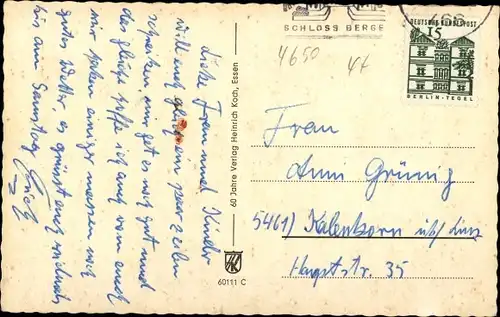 SCHLOSS BERGE
DEUTSCHE BUNDESPOST
15
BERLIN-TEGEL
4650
Liebe Frau und Kinder
will euch gleich ein paar zeilen
schreiben, mir get es noch gut und
das gleiche hoffe ich auch von euch
wir haben einiger massen noch
gutes Wetter, es grüsst euch
bis am Samstag Erich
60 Jahre Verlag Heinrich Koch, Essen
60111 C
Frau
Anni Grünig
5461) Kalenborn üb/ Linz
Hauptstr. 35